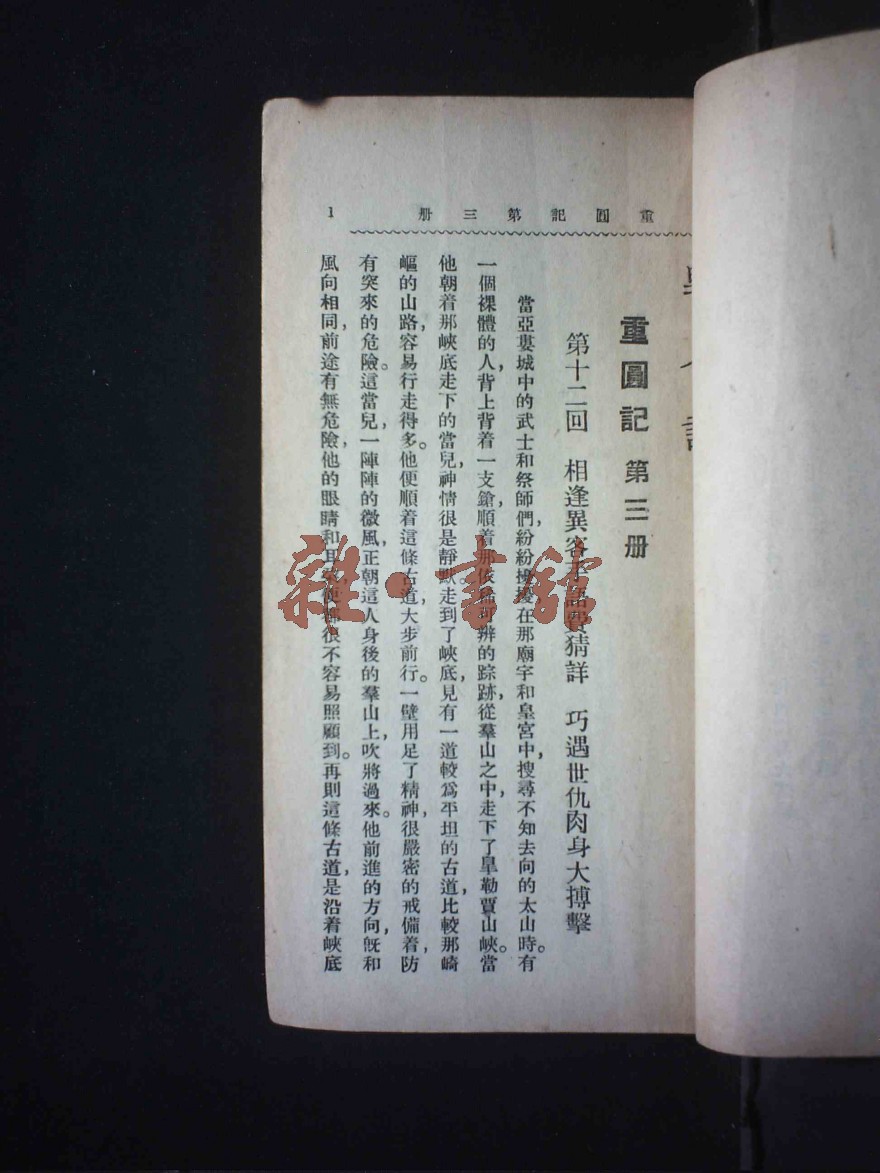 重圓記第三册
1
重圓記 第三册
第十二回 相逢異客子語費猜詳 巧遇世仇肉身大搏擊
當亞婁城中的武士和祭師們，紛紛擾擾，在那廟宇和皇宮中，搜尋不知去向的太山時。有
一個裸體的人，背上背着一支鎗，順着那依稀可辨的踪跡，從羣山之中，走下了皐勒賈山峽。當
他朝着那峽底走下的當兒，神情很是靜默。走到了峽底，見有一道較爲平坦的古道，比較那崎
嶇的山路，容易行走得多。他便順着這條古道，大步前行。一壁用足了精神，很嚴密的戒備着，防
有突來的危險。這當兒，一陣陣的微風，正朝這人身後的羣山上，吹將過來。他前進的方向，旣和
風向相同，前途有無危險，他的眼睛和耳 很不容易照顧到。再則這條古道，是沿着峽底
雜·書館